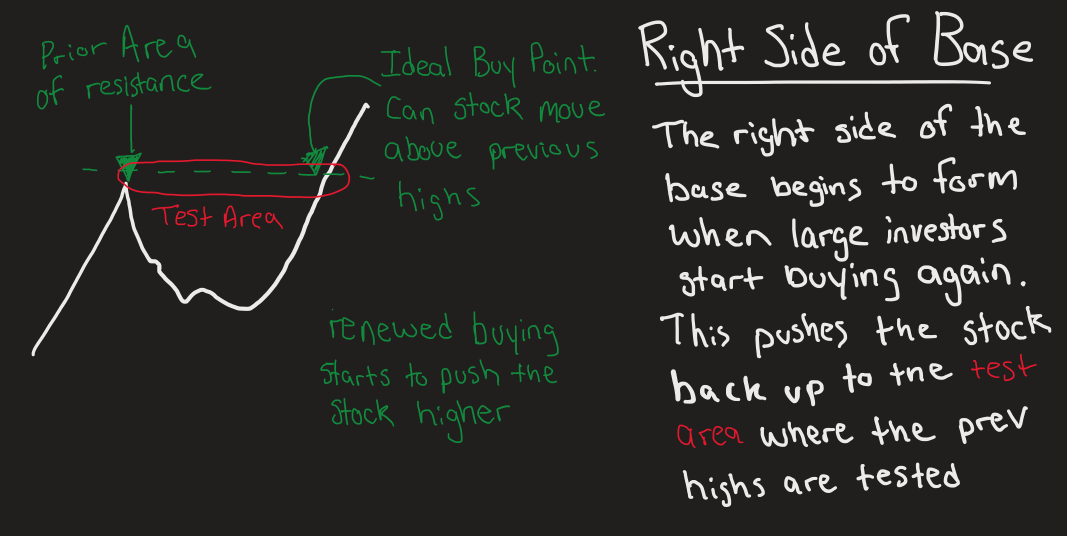 Prior Area
of resistance
Ideal Buy Point.
Can stock move
above previous
highs
Test Area
renewed buying
starts to push the
stock higher
Right Side of Base
The right side of the
base begins to form
when large investors
start buying again.
This pushes the stock
back up to the test
area where the prev
highs are tested